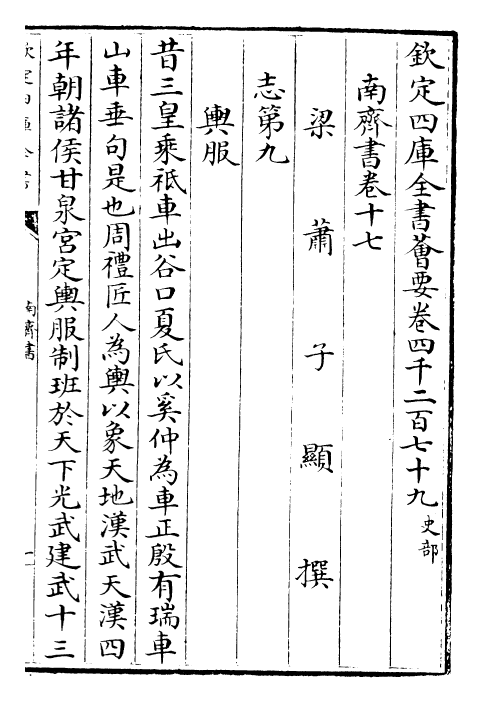 欽定四庫全書薈要卷四千二百七十九史部
南齊書卷十七
梁蕭子顯撰
志第九
輿服
昔三皇乘祇車出谷口夏氏以奚仲為車正殷有瑞車
山車垂句是也周禮匠人為輿以象天地漢武天漢四
年朝諸侯甘泉宮定輿服制班於天下光武建武十三
欽定四庫全書
南齊書
一